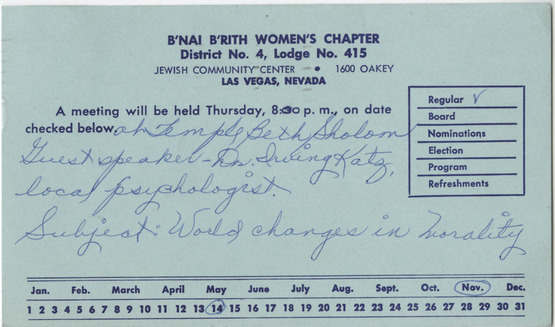 B'NAI B'RITH WOMEN'S CHAPTER
District No. 4, Lodge No. 415
JEWISH COMMUNITY CENTER • 1600 OAKEY
LAS VEGAS, NEVADA
A meeting will be held Thursday, 8:30 p. m., on date
checked below. at Temple Beth Sholom
Guest speaker - Dr. Irving Katz,
local psychologist.
Subject: World changes in morality
Regular ✓
Board
Nominations
Election
Program
Refreshments
Jan. Feb. March April May June July Aug. Sept. Oct. Nov. Dec.
1 2 3 4 5 6 7 8 9 10 11 12 13 14 15 16 17 18 19 20 21 22 23 24 25 26 27 28 29 30 31